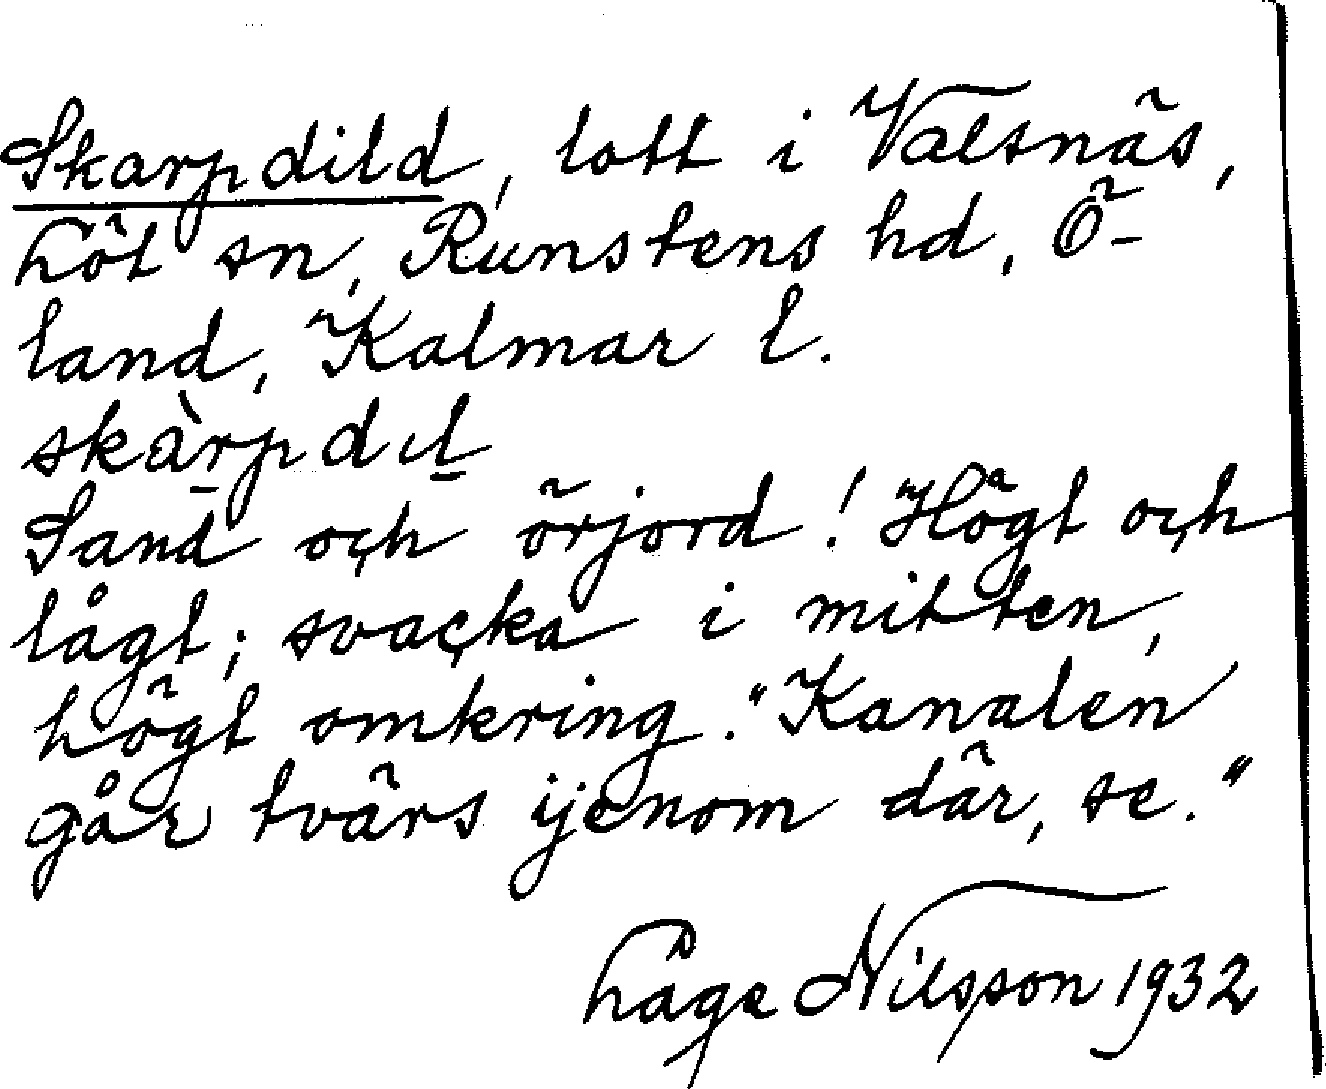 Skarpdild, lott i Valsnäs,
Löt sn, Runstens hd, Ö-
land, Kalmar l.
skàrpdıl
Sand och örjord! Högt och
lågt; svacka i mitten,
högt omkring. "Kanalen
går tvärs ijenom där, se."
Låge Nilsson 1932